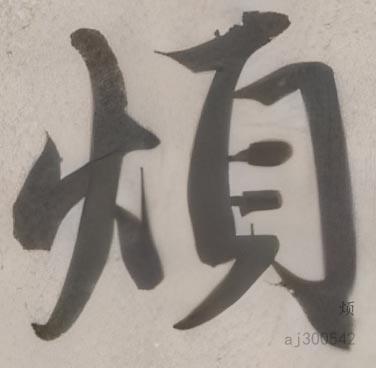 煩
烦
aj300542